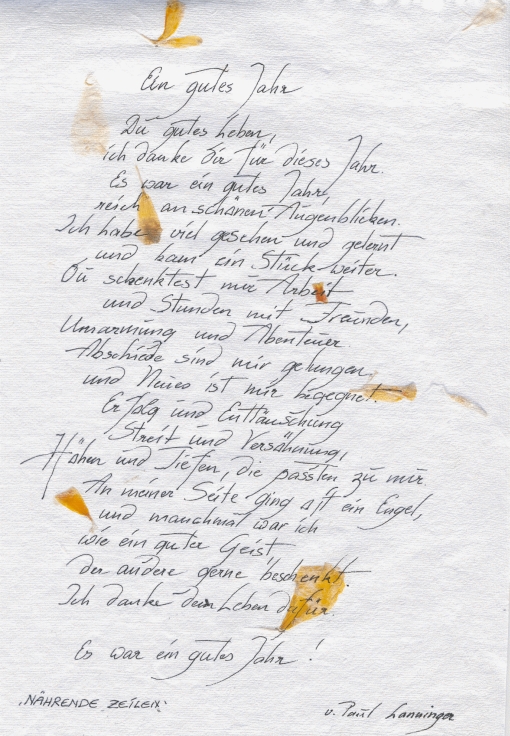 Ein gutes Jahr
Du gutes Leben,
ich danke dir für dieses Jahr.
Es war ein gutes Jahr,
reich an schönen Augenblicken.
Ich habe viel gesehen und gelernt
und kam ein Stück weiter.
Du schenktest mir Arbeit
und Stunden mit Freunden,
Umarmung und Abenteuer
Abschiede sind mir gelungen
und Neues ist mir begegnet.
Erfolg und Enttäuschung
Streit und Versöhnung,
Höhen und Tiefen, die passten zu mir.
An meiner Seite ging oft ein Engel,
und manchmal war ich
wie ein guter Geist,
der andere gerne beschenkt.
Ich danke dem Leben dafür.
Es war ein gutes Jahr!
"NÄHRENDE ZEILEN"
v. Paul Lanninger